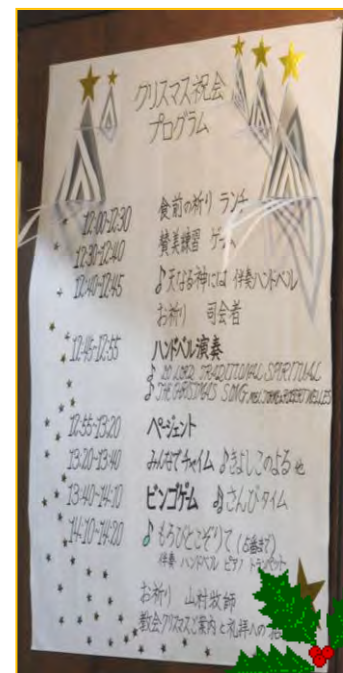 クリスマス祝会
プログラム
12:00-12:30 食前の祈り ランチ
12:30-12:40 賛美練習 ゲーム
12:40-12:45 ♪天なる神には 伴奏ハンドベル
お祈り 司会者
12:45-12:55 ハンドベル演奏
♪ LORD, TRADITIONAL SPIRITUAL
♪ THE CHRISTMAS SONG
12:55-13:20 ページェント
13:20-13:40 みんなでチャイム ♪きよしこのよる 他
13:40-14:10 ビンゴゲーム ♪さんびタイム
14:10-14:20 ♪もろびとこぞりて(5番まで)
伴奏 ハンドベル ピアノ トランペット
お祈り 山村牧師
教会クリスマスご案内と礼拝への